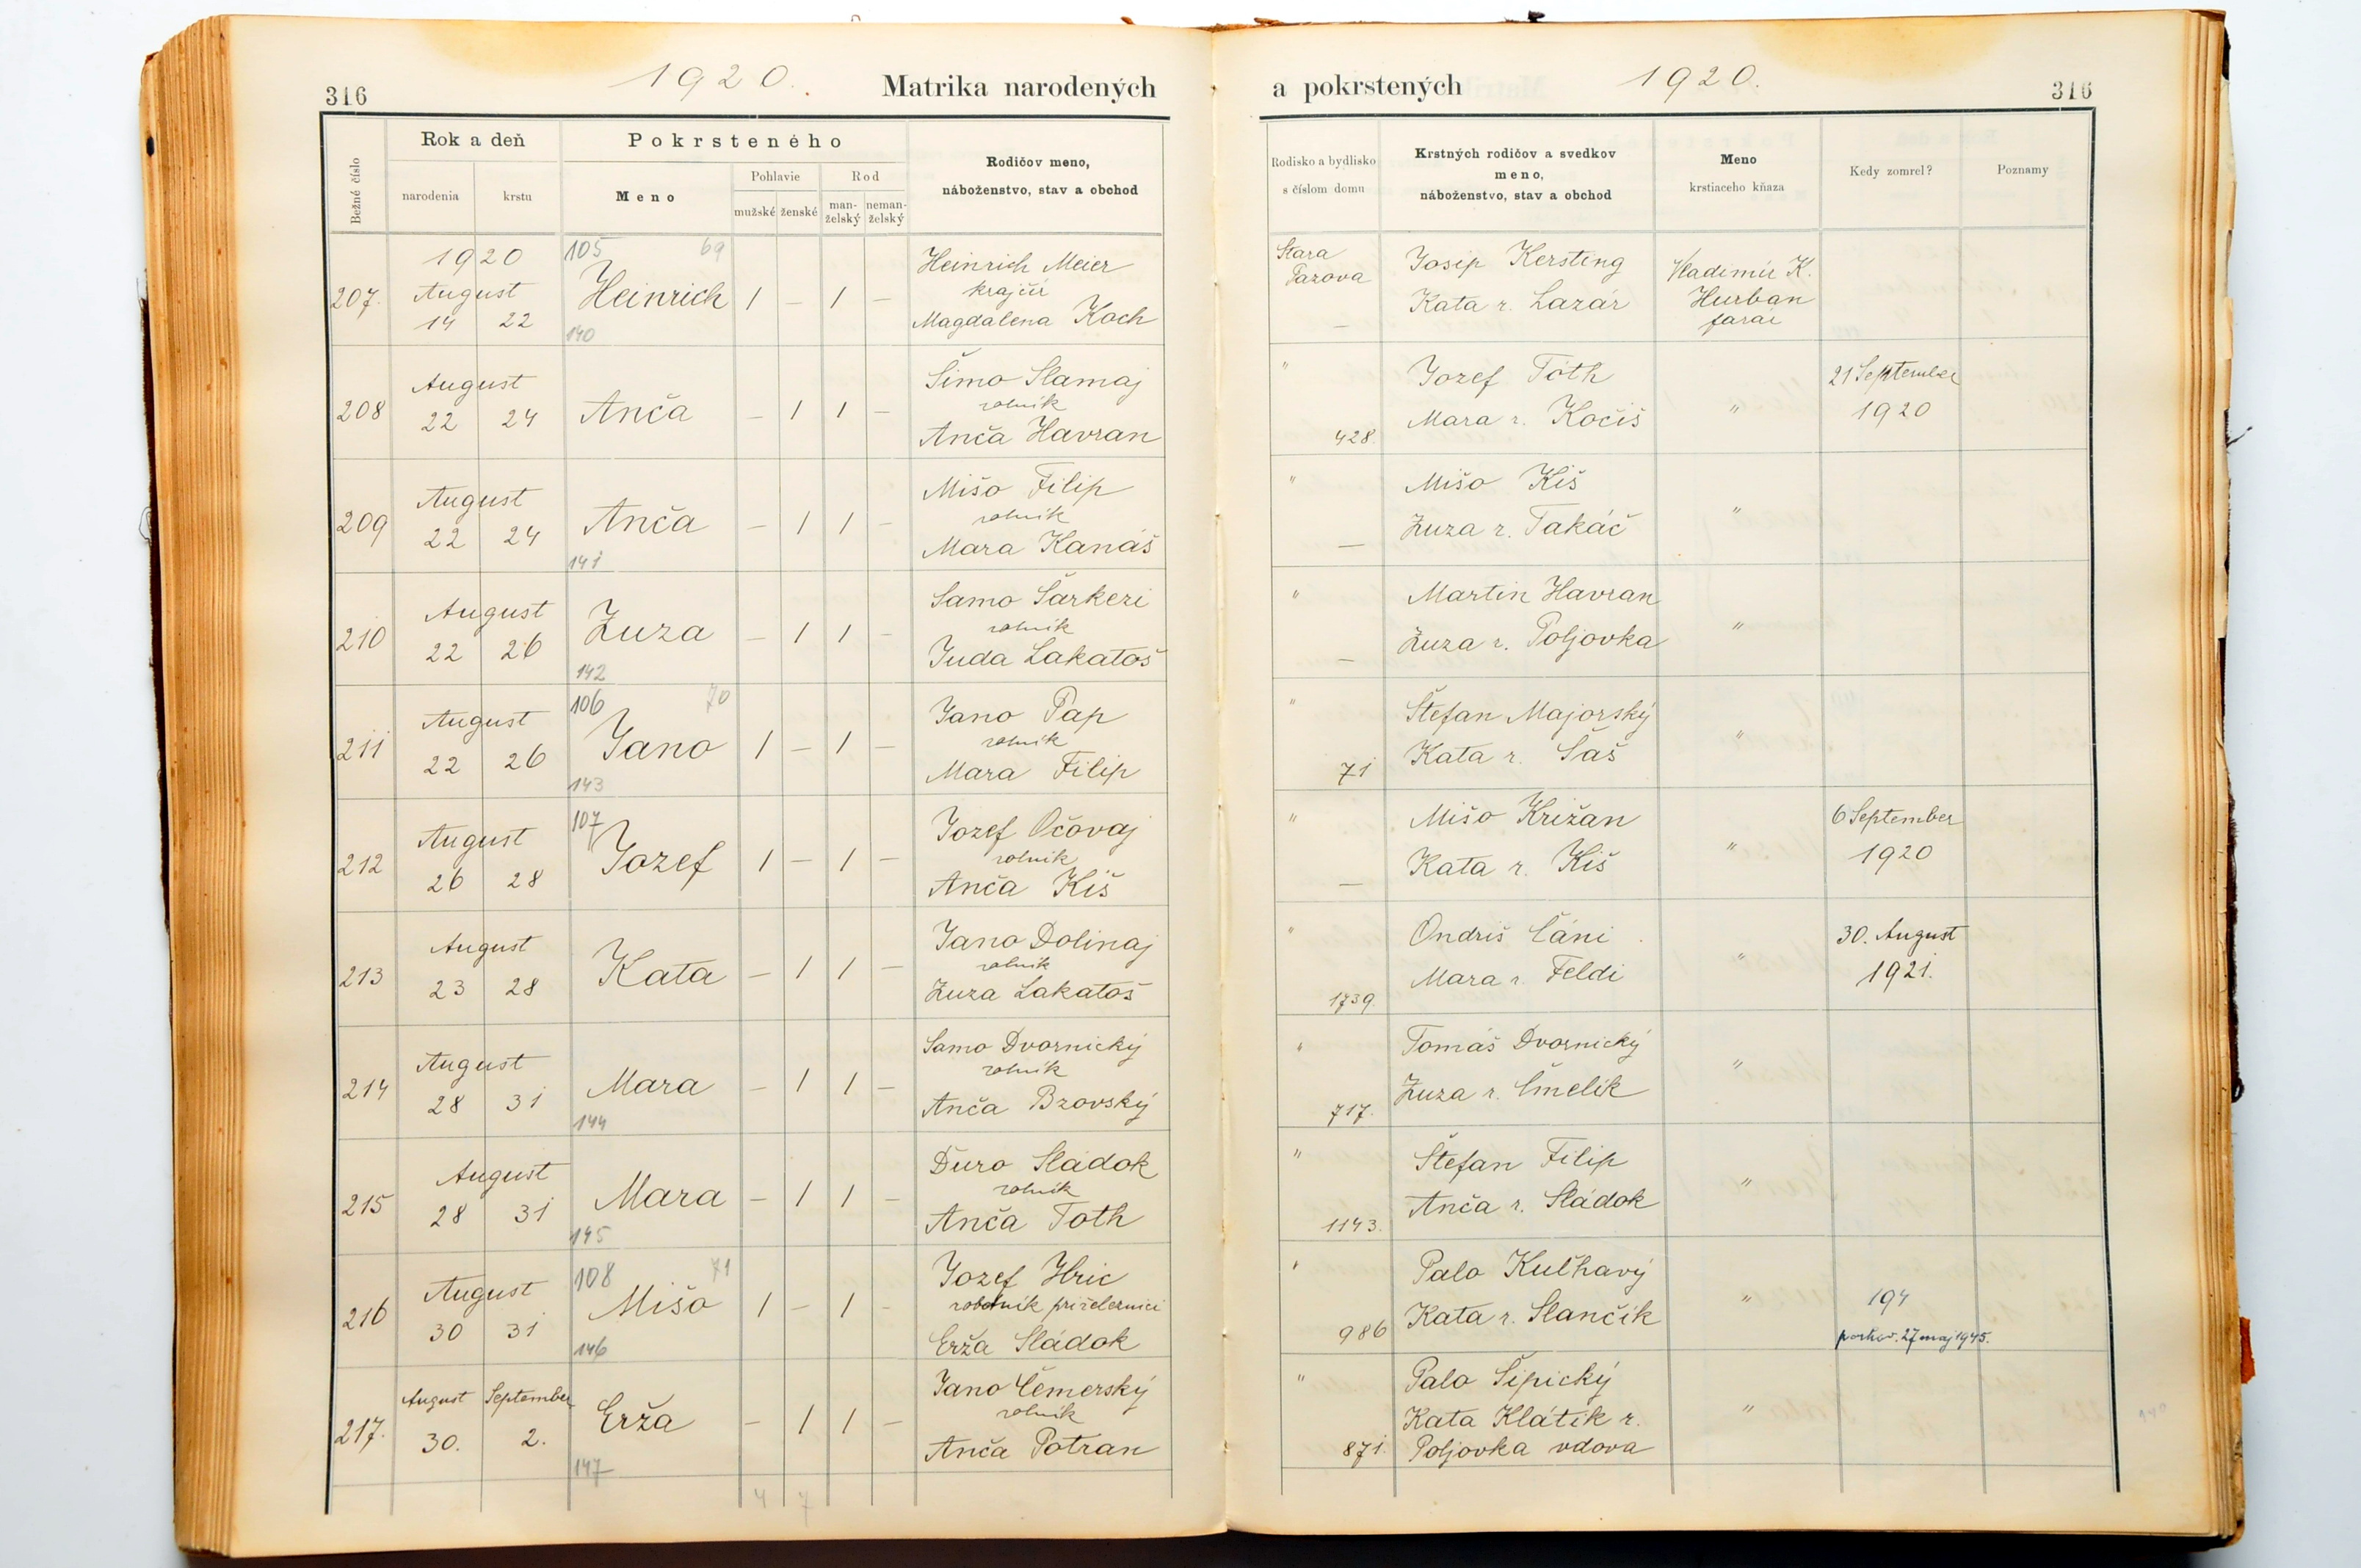 316
1920.
Matrika narodených
Bežné číslo
Rok a deň
narodenia
krstu
Pokrsteného
Meno
Pohlavie
mužské
ženské
Rod
man-
želský
neman-
želský
Rodičov meno,
náboženstvo, stav a obchod
207.
1920
August
14 22
105 69
Heinrich
140
1 – 1 –
Heinrich Meier
krajčír
Magdalena Koch
208
August
22 24
Anča
– 1 1 –
Šimo Slamaj
rolník
Anča Havran
209
August
22 24
Anča
141
– 1 1 –
Mišo Filip
rolník
Mara Kanáš
210
August
22 26
Zuza
142
– 1 1 –
Samo Šarkezi
rolník
Juda Lakatoš
211
August
22 26
106 70
Jano
143
1 – 1 –
Jano Pap
rolník
Mara Filip
212
August
26 28
107
Jozef
1 – 1 –
Jozef Očovaj
rolník
Anča Kiš
213
August
23 28
Kata
– 1 1 –
Jano Dolinaj
rolník
Zuza Lakatoš
214
August
28 31
Mara
144
– 1 1 –
Samo Dvornický
rolník
Anča Bzovský
215
August
28 31
Mara
145
– 1 1 –
Ďuro Sládok
rolník
Anča Toth
216
August
30 31
108 71
Mišo
146
1 – 1 –
Jozef Hric
robotník pri želernici
Erža Sládok
217.
August September
30. 2.
Erža
147
– 1 1 –
Jano Čemerský
rolník
Anča Potran
4 7
a pokrstených
1920.
316
Rodisko a bydlisko
s číslom domu
Krstných rodičov a svedkov
meno,
náboženstvo, stav a obchod
Meno
krstiaceho kňaza
Kedy zomrel?
Poznamy
Stara
Pazova
–
Josip Kersting
Kata r. Lazár
Vladimír K.
Hurban
farár
"
428.
Jozef Tóth
Mara r. Kočiš
"
21 September
1920
"
–
Mišo Kiš
Zuza r. Takáč
"
"
–
Martin Havran
Zuza r. Poljovka
"
"
71
Štefan Majorský
Kata r. Šaš
"
"
–
Mišo Križan
Kata r. Kiš
"
6 September
1920
"
1739.
Ondriš Čáni
Mara r. Feldi
"
30. August
1921.
"
717.
Tomáš Dvornický
Zuza r. Čmelík
"
"
1143.
Štefan Filip
Anča r. Sládok
"
"
986
Palo Kulhavý
Kata r. Slančík
"
194
27 maj 1945.
"
871.
Palo Šipický
Kata Klátik r.
Poljovka vdova
"